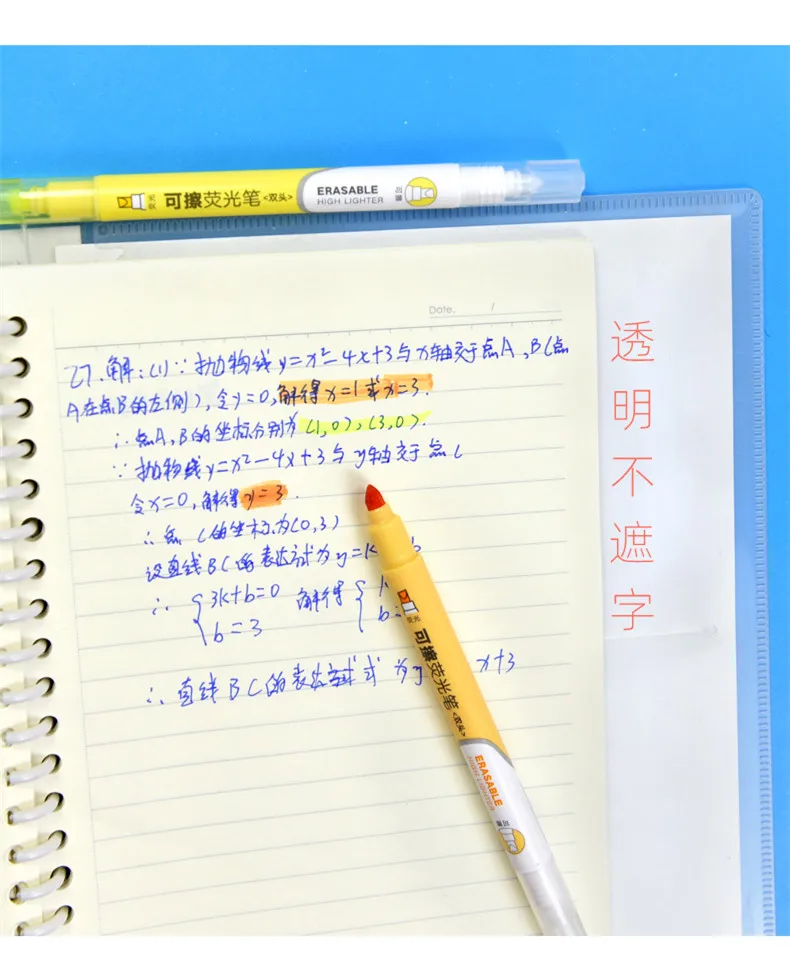 可擦荧光笔<双头>
ERASABLE
HIGH LIGHTER
可擦
Date. /
27.解:(1)∵抛物线y=x²-4x+3与x轴交于点A,B(点
A在点B的左侧),令y=0,解得x=1或x=3.
∴点A,B的坐标分别为(1,0),(3,0).
∵抛物线y=x²-4x+3与y轴交于点C
令x=0,解得y=3.
∴点C的坐标为(0,3)
设直线BC的表达式为y=k b
∴{3k+b=0 解得{k
b=3 b=
∴直线BC的表达式式为y x+3
透明不遮字
荧光
可擦荧光笔<双头>
ERASABLE
HIGH LIGHTER